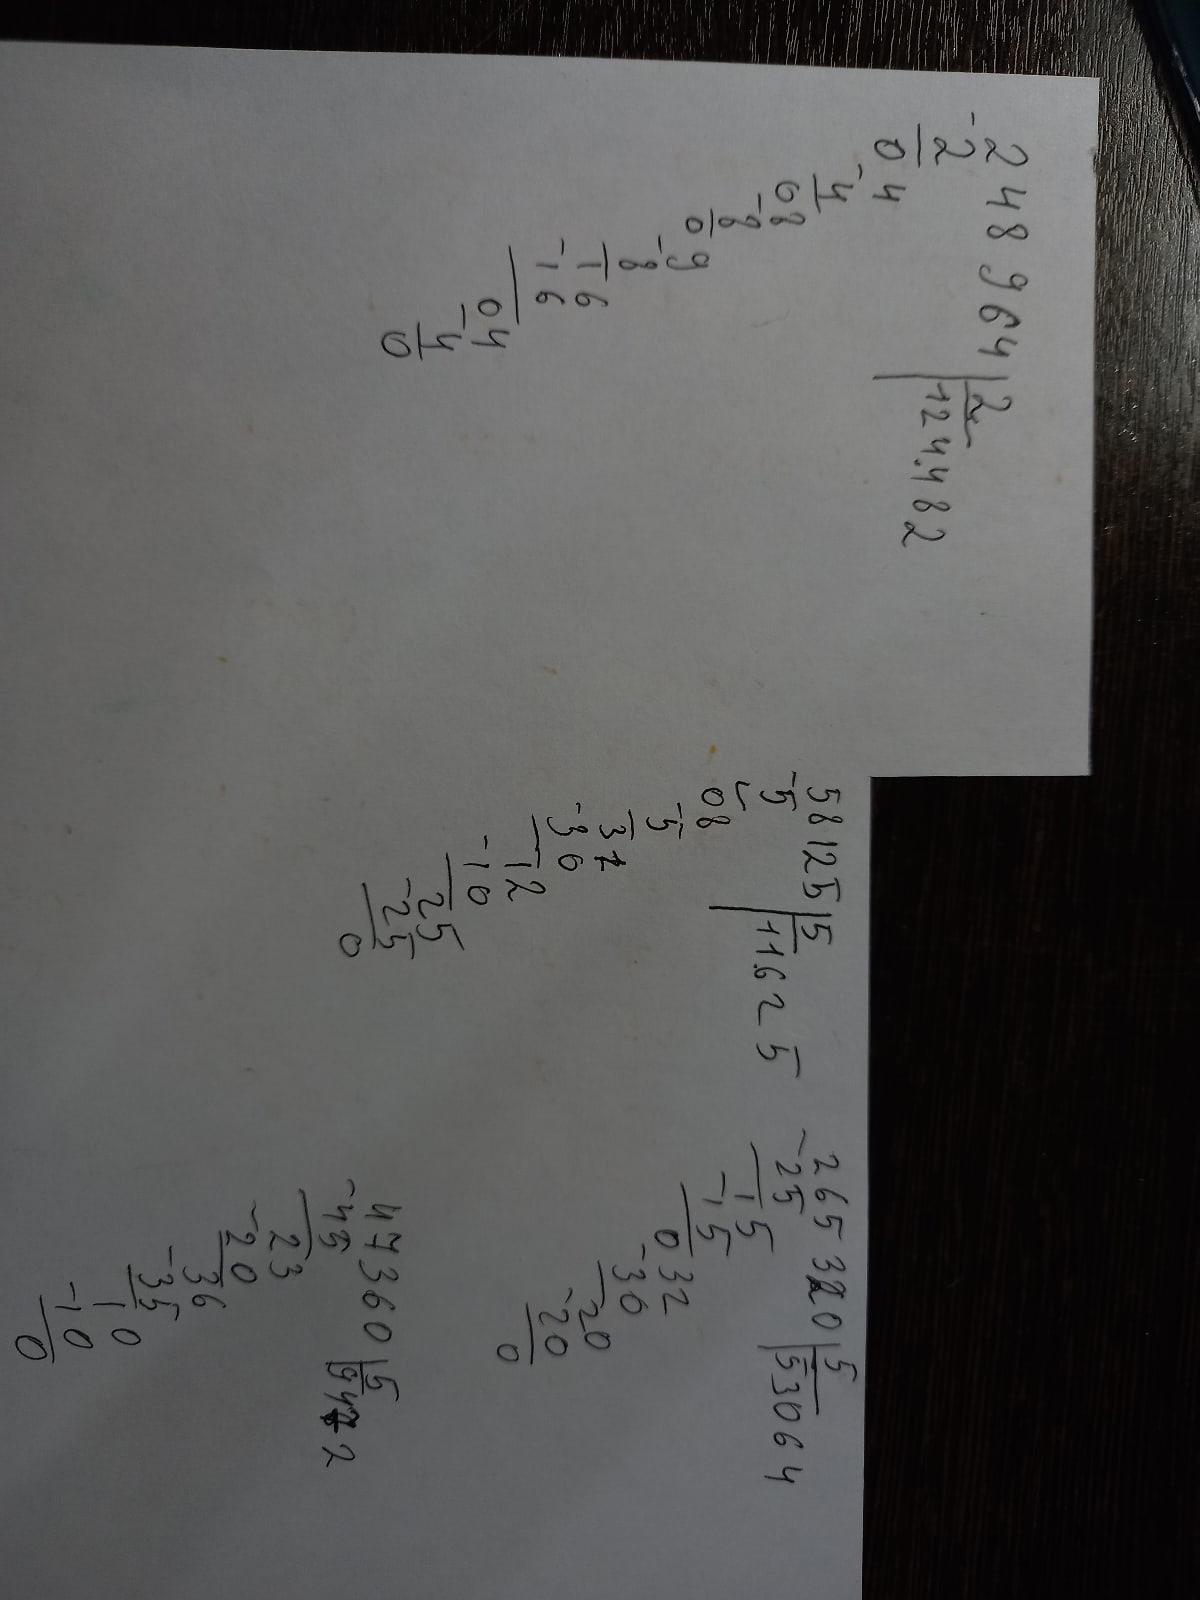 248964 | 2
-2 124.482
04
-4
08
-8
09
-8
16
-16
04
-4
0
58125 | 5
-5 11.625
08
-5
31
-30
12
-10
25
-25
0
265320 | 5
-25 53064
15
-15
032
-30
20
-20
0
47360 | 5
-45 9472
23
-20
36
-35
10
-10
0